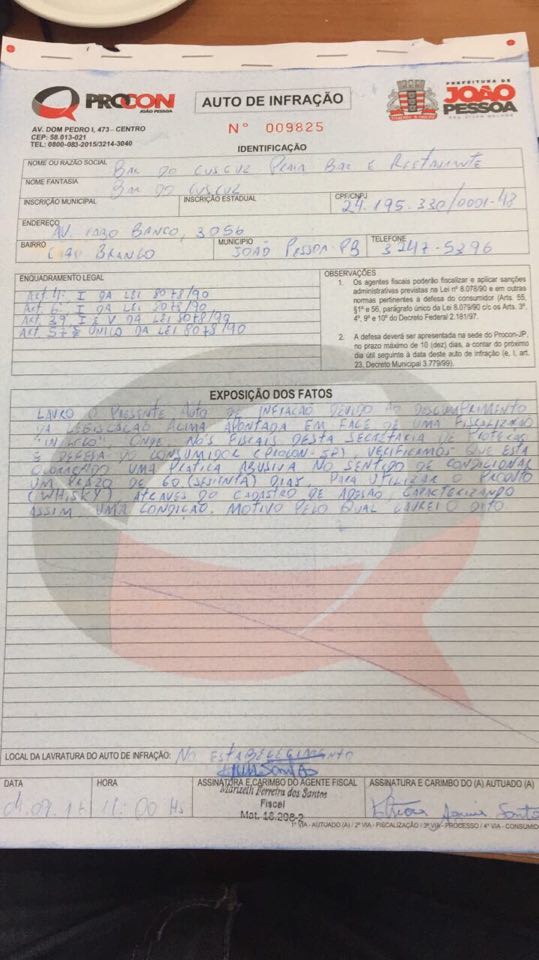 PROCON
JOÃO PESSOA
AV. DOM PEDRO I, 473 – CENTRO
CEP: 58.013-021
TEL: 0800-083-2015/3214-3040
AUTO DE INFRAÇÃO
Nº 009825
PREFEITURA DE
JOÃO
PESSOA
IDENTIFICAÇÃO
NOME OU RAZÃO SOCIAL BAR DO CUSCUZ PRAIA BAR E RESTAURANTE
NOME FANTASIA BAR DO CUSCUZ
INSCRIÇÃO MUNICIPAL INSCRIÇÃO ESTADUAL CPF/CNPJ 24.195.330/0001-48
ENDEREÇO AV. CABO BRANCO, 3056
BAIRRO CABO BRANCO MUNICÍPIO JOÃO PESSOA-PB TELEFONE 3247-5396
ENQUADRAMENTO LEGAL
Art 4º I DA LEI 8078/90
Art 6º I DA LEI 8078/90
Art 39 I E V DA LEI 8078/90
Art 57 E ÚNICO DA LEI 8078/90
OBSERVAÇÕES
1. Os agentes fiscais poderão fiscalizar e aplicar sanções
administrativas previstas na Lei nº 8.078/90 e em outras
normas pertinentes à defesa do consumidor (Arts. 55,
§1º e 56, parágrafo único da Lei 8.079/90 c/c os Arts. 3º,
4º, 9º e 10º do Decreto Federal 2.181/97.
2. A defesa deverá ser apresentada na sede do Procon-JP,
no prazo máximo de 10 (dez) dias, a contar do próximo
dia útil seguinte à data deste auto de infração (e, I, art.
23, Decreto Municipal 3.779/99).
EXPOSIÇÃO DOS FATOS
LAVRO O PRESENTE AUTO DE INFRAÇÃO DEVIDO AO DESCUMPRIMENTO
DA LEGISLAÇÃO ACIMA APONTADA EM FACE DE UMA FISCALIZAÇÃO
"IN LOCO" ONDE NÓS FISCAIS DESTA SECRETARIA DE PROTEÇÃO
E DEFESA DO CONSUMIDOR (PROCON-JP), VERIFICAMOS QUE ESTA
OCORRENDO UMA PRÁTICA ABUSIVA NO SENTIDO DE CONDICIONAR
UM PRAZO DE 60 (SESSENTA) DIAS, PARA UTILIZAR O PRODUTO
(WHISKY) ATRAVÉS DO CADASTRO DE ADESÃO, CARACTERIZANDO
ASSIM UMA CONDIÇÃO, MOTIVO PELO QUAL LAVREI O DITO
LOCAL DA LAVRATURA DO AUTO DE INFRAÇÃO: NO ESTABELECIMENTO
DATA HORA ASSINATURA E CARIMBO DO AGENTE FISCAL ASSINATURA E CARIMBO DO (A) AUTUADO (A)
11:00 Hs
Ferreira dos Santos
Fiscal
Mat. 16.298-2
1ª VIA - AUTUADO (A) / 2ª VIA - FISCALIZAÇÃO / 3ª VIA - PROCESSO / 4ª VIA - CONSUMI